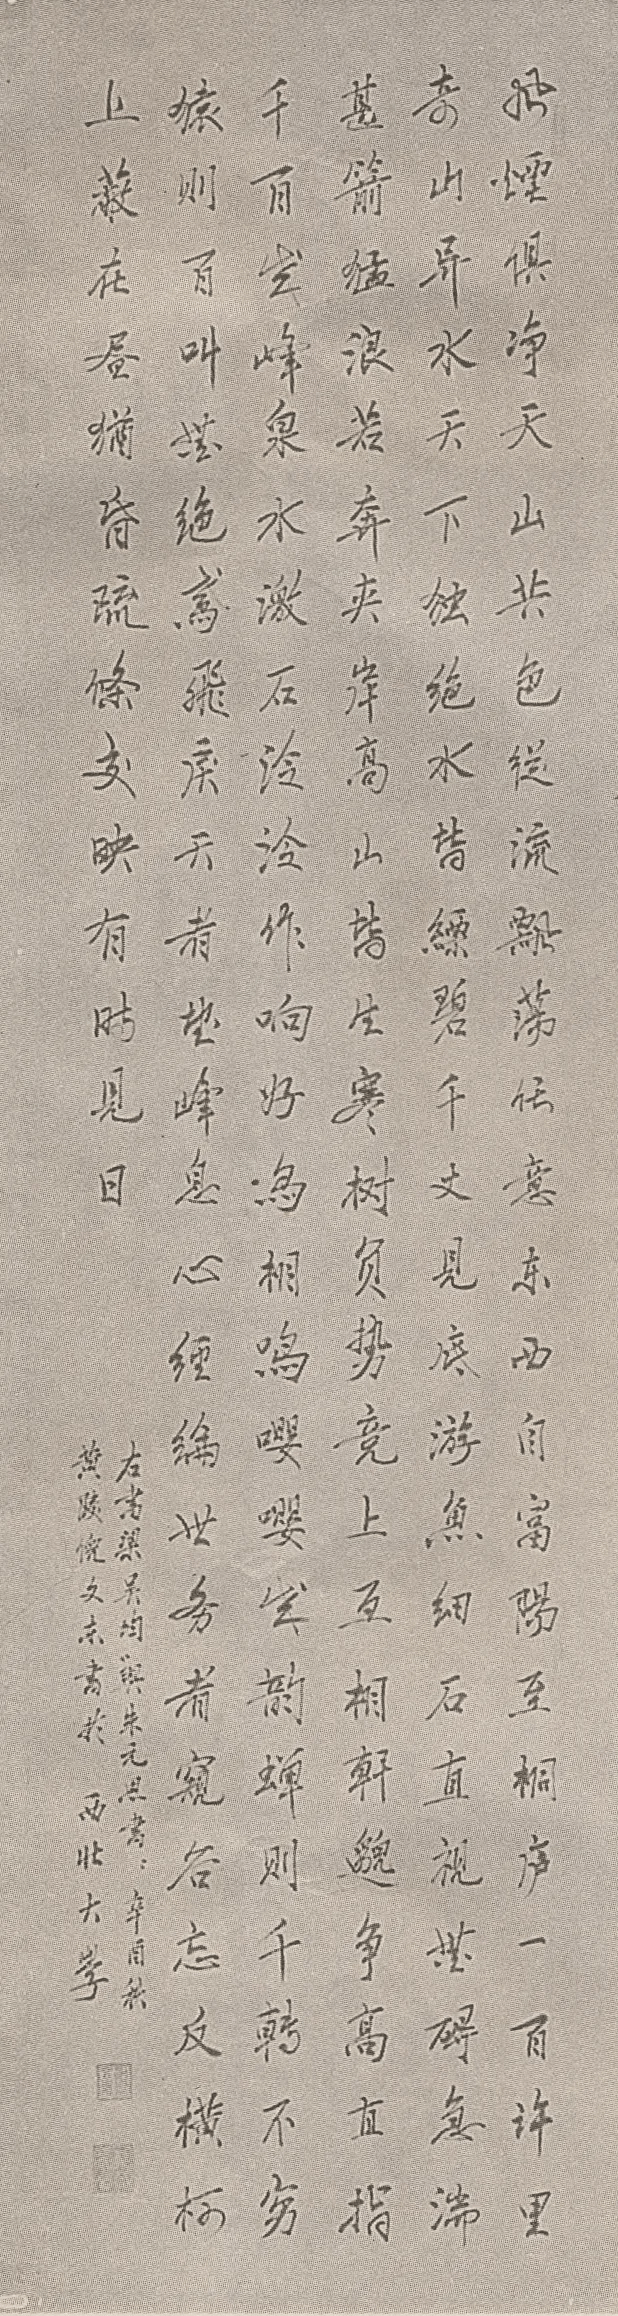 风煙俱净天山共色従流飘荡任意东西自富陽至桐庐一百许里
奇山异水天下独绝水皆縹碧千丈見底游魚细石直視無碍急湍
甚箭猛浪若奔夹岸高山皆生寒树负势竞上互相軒邈争高直指
千百成峰泉水激石泠泠作响好鸟相鸣嘤嘤成韵蝉则千转不穷
猿则百叫無绝鸢飛戾天者望峰息心經綸世务者窥谷忘反横柯
上蔽在昼犹昏疏條交映有时見日
右书梁吴均與朱元思书辛酉秋
黄陵倪文东書於西北大學